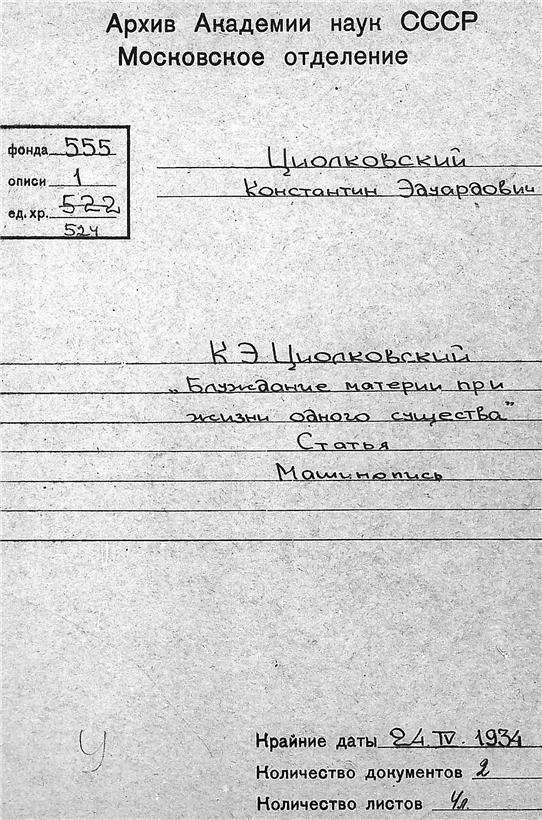 Архив Академии наук СССР
Московское отделение
фонда 555
описи 1
ед. хр. 522
524
Циолковский
Константин Эдуардович
К Э Циолковский
„Блуждание материи при
жизни одного существа"
Статья
Машинопись
У
Крайние даты 24. IV. 1934
Количество документов 2
Количество листов 4л.